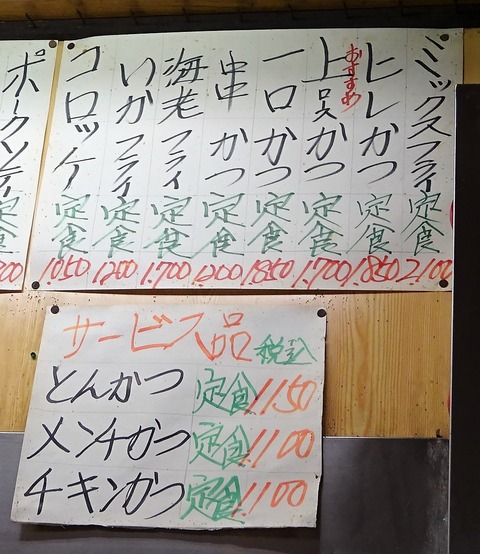 ミックスフライ定食 2,100
ヒレかつ定食 1,850
おすすめ
上ロースかつ定食 1,700
一口かつ定食 1,850
串かつ定食 1,200
海老フライ定食 1,700
いかフライ定食 1,200
コロッケ定食 1,050
サービス品 税込
とんかつ定食 1,150
メンチかつ定食 1,100
チキンかつ定食 1,100